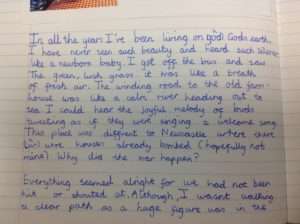 In all the years I've been living on god Gods earth
I have never seen such beauty and heard such silence
like a newborn baby. I got off the bus and saw
The green, lush grass it was like a breath
of fresh air. The winding road to the old farm-
house was like a calm river heading out to
sea I could hear the joyful melody of birds
tweeting as if they were singing a welcome song.
This place was diffrent to Newcastle where there
were houses already bombed (hopefully not
mine) Why did the war happen?
Everything seemed alright for we had not been
hit or shouted at. Although, I wasnt walking
a clear path as a huge figure was in the